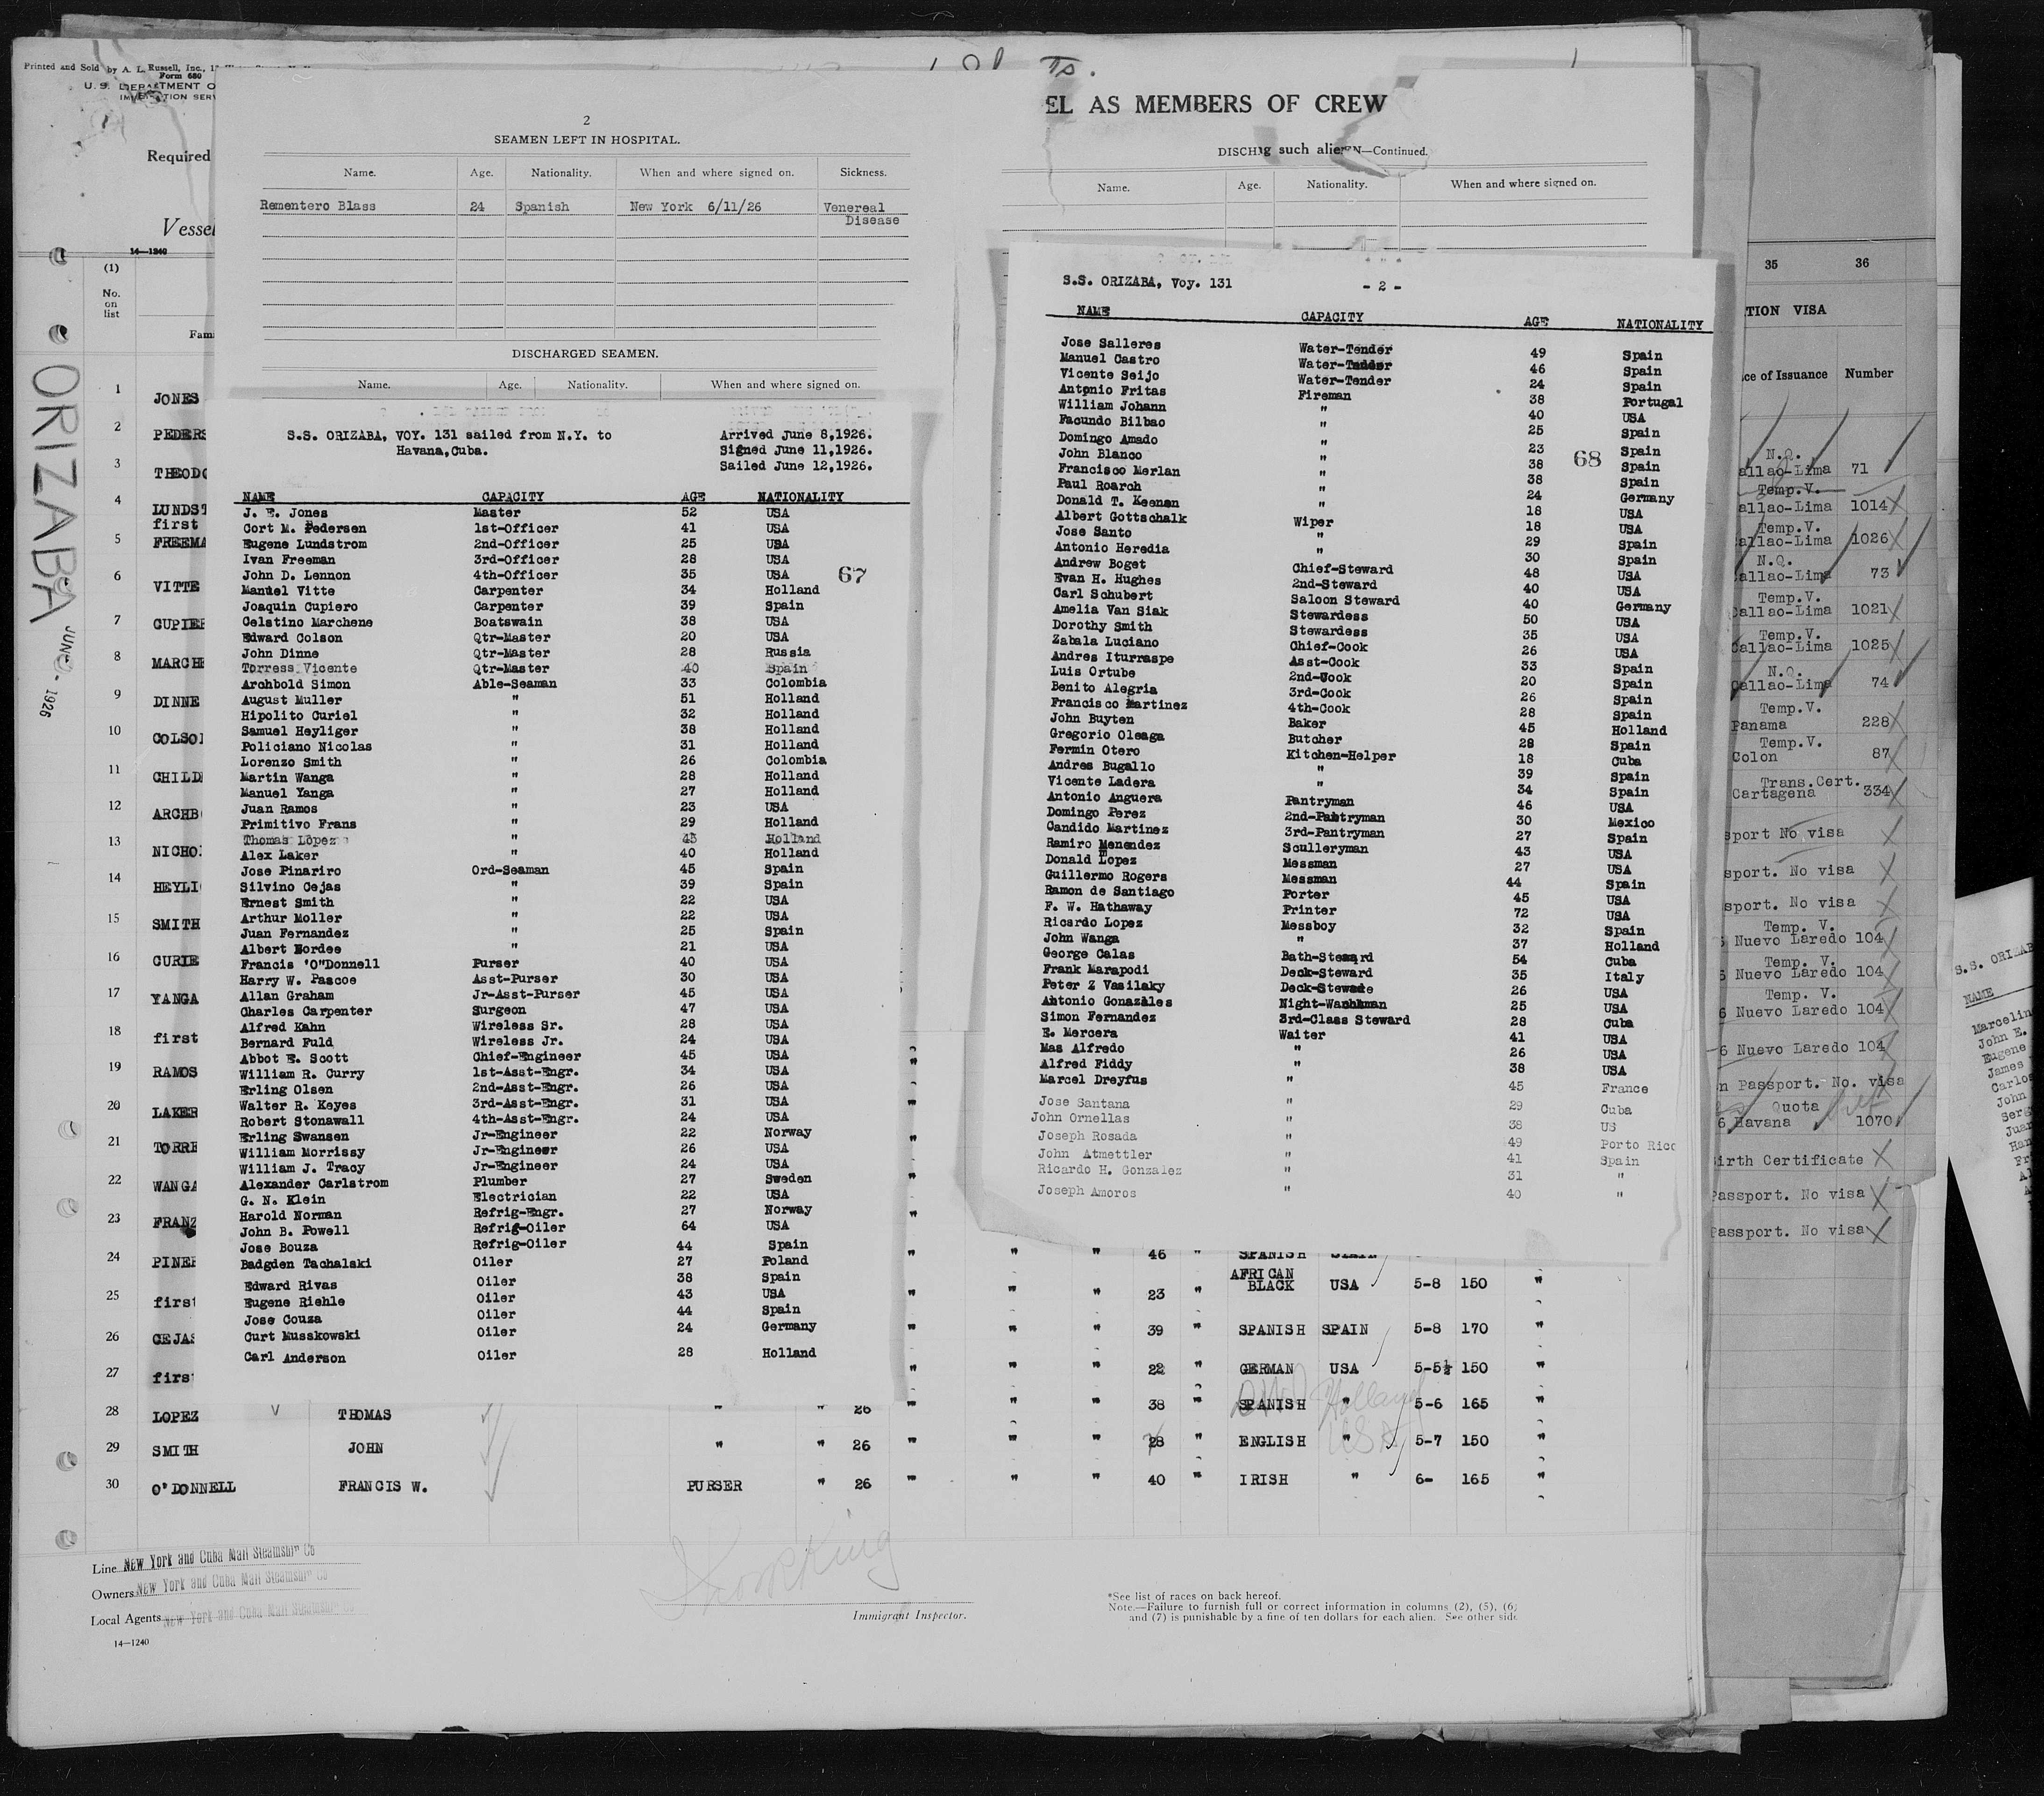 Printed and Sold by A. L. Russell, Inc.,
Form 680
U. S. DEPARTMENT O
Required
Vessel
14—1240
(1)
No.
on
list
Fam
ORIZABA
JUNE - 1926
1 JONES
2 PEDERS
3 THEODO
4 LUNDST
first
5 FREEMA
6 VITTE
7 CUPIER
8 MARCHE
9 DINNE
10 COLSO
11 CHILD
12 ARCHB
13 NICHO
14 HEYLI
15 SMITH
16 CURIE
17 YANGA
18 first
19 RAMOS
20 LAKER
21 TORRE
22 WANGA
23 FRANZ
24 PINEI
25 first
26 CEJAS
27 first
2
SEAMEN LEFT IN HOSPITAL.
Name. Age. Nationality. When and where signed on. Sickness.
Rementero Blass 24 Spanish New York 6/11/26 Venereal
Disease
DISCHARGED SEAMEN.
Name. Age. Nationality. When and where signed on.
S.S. ORIZABA, VOY. 131 sailed from N.Y. to Arrived June 8,1926.
Havana,Cuba. Signed June 11,1926.
Sailed June 12,1926.
NAME CAPACITY AGE NATIONALITY
J. E. Jones Master 52 USA
Cort M. Pedersen 1st-Officer 41 USA
Eugene Lundstrom 2nd-Officer 25 USA
Ivan Freeman 3rd-Officer 28 USA
John D. Lennon 4th-Officer 35 USA 67
Manuel Vitte Carpenter 34 Holland
Joaquin Cupiero Carpenter 39 Spain
Celstino Marchene Boatswain 38 USA
Edward Colson Qtr-Master 20 USA
John Dinne Qtr-Master 28 Russia
Torress Vicente Qtr-Master 40 Spain
Archbold Simon Able-Seaman 33 Colombia
August Muller " 51 Holland
Hipolito Curiel " 32 Holland
Samuel Heyliger " 38 Holland
Policiano Nicolas " 31 Holland
Lorenzo Smith " 26 Colombia
Martin Wanga " 28 Holland
Manuel Yanga " 27 Holland
Juan Ramos " 23 USA
Primitivo Frans " 29 Holland
Thomas Lopez " 43 Holland
Alex Laker " 40 Holland
Jose Pinariro Ord-Seaman 45 Spain
Silvino Cejas " 39 Spain
Ernest Smith " 22 USA
Arthur Moller " 22 USA
Juan Fernandez " 25 Spain
Albert Nordee " 21 USA
Francis 'O"Donnell Purser 40 USA
Harry W. Pascoe Asst-Purser 30 USA
Allan Graham Jr-Asst-Purser 45 USA
Charles Carpenter Surgeon 47 USA
Alfred Kahn Wireless Sr. 28 USA
Bernard Fuld Wireless Jr. 24 USA
Abbot E. Scott Chief-Engineer 45 USA
William R. Curry 1st-Asst-Engr. 34 USA
Erling Olsen 2nd-Asst-Engr. 26 USA
Walter R. Keyes 3rd-Asst-Engr. 31 USA
Robert Stonawall 4th-Asst-Engr. 24 USA
Erling Swansen Jr-Engineer 22 Norway
William Morrissy Jr-Engineer 26 USA
William J. Tracy Jr-Engineer 24 USA
Alexander Carlstrom Plumber 27 Sweden
G. N. Klein Electrician 22 USA
Harold Norman Refrig-Engr. 27 Norway
John B. Powell Refrig-Oiler 64 USA
Jose Bouza Refrig-Oiler 44 Spain
Badgden Tachalaki Oiler 27 Poland
Edward Rivas Oiler 38 Spain
Eugene Riehle Oiler 43 USA
Jose Couza Oiler 44 Spain
Curt Musskowski Oiler 24 Germany
Carl Anderson Oiler 28 Holland
EL AS MEMBERS OF CREW
DISCH g such alie N—Continued.
Name. Age. Nationality. When and where signed on.
S.S. ORIZABA, Voy. 131 - 2 -
NAME CAPACITY AGE NATIONALITY
Jose Salleres Water-Tender 49 Spain
Manuel Castro Water-Tender 46 Spain
Vicente Seijo Water-Tender 24 Spain
Antonio Fritas Fireman 38 Portugal
William Johann " 40 USA
Facundo Bilbao " 25 Spain
Domingo Amado " 23 Spain
John Blanco " 38 Spain 68
Francisco Merlan " 38 Spain
Paul Roarch " 24 Germany
Donald T. Keenan " 18 USA
Albert Gottschalk Wiper 18 USA
Jose Santo " 29 Spain
Antonio Heredia " 30 Spain
Andrew Boget Chief-Steward 48 USA
Evan H. Hughes 2nd-Steward 40 USA
Carl Schubert Saloon Steward 40 Germany
Amelia Van Siak Stewardess 50 USA
Dorothy Smith Stewardess 35 USA
Zabala Luciano Chief-Cook 26 USA
Andres Iturraspe Asst-Cook 33 Spain
Luis Ortube 2nd-Cook 20 Spain
Benito Alegria 3rd-Cook 26 Spain
Francisco Martinez 4th-Cook 28 Spain
John Buyten Baker 45 Holland
Gregorio Oleaga Butcher 28 Spain
Fermin Otero Kitchen-Helper 18 Cuba
Andres Bugallo " 39 Spain
Vicente Ladera " 34 Spain
Antonio Anguera Pantryman 46 USA
Domingo Perez 2nd-Pantryman 30 Mexico
Candido Martinez 3rd-Pantryman 27 Spain
Ramiro Menendez Sculleryman 43 USA
Donald Lopez Messman 27 USA
Guillermo Rogers Messman 44 Spain
Ramon de Santiago Porter 45 USA
F. W. Hathaway Printer 72 USA
Ricardo Lopez Messboy 32 Spain
John Wanga " 37 Holland
George Calas Bath-Steward 54 Cuba
Frank Marapodi Deck-Steward 35 Italy
Peter Z Vasilaky Deck-Steward 26 USA
Antonio Gonazales Night-Watchman 25 USA
Simon Fernandez 3rd-Class Steward 28 Cuba
E. Mercera Waiter 41 USA
Mas Alfredo " 26 USA
Alfred Fiddy " 38 USA
Marcel Dreyfus " 45 France
Jose Santana " 29 Cuba
John Ornellas " 38 US
Joseph Rosada " 49 Porto Rico
John Atmettler " 41 Spain
Ricardo H. Gonzalez " 31 "
Joseph Amoros " 40 "
" " " 46 " SPANISH SPAIN
AFRICAN
" 23 " BLACK USA 5-8 150 "
" " " 39 " SPANISH SPAIN 5-8 170 "
" " " 22 " GERMAN USA 5-5½ 150 "
28 LOPEZ THOMAS " " 26 " " " 38 " SPANISH " Holland 5-6 165 "
29 SMITH JOHN " " 26 " " " 28 " ENGLISH " USA 5-7 150 "
30 O'DONNELL FRANCIS W. PURSER " 26 " " " 40 " IRISH " 6- 165 "
Line New York and Cuba Mail Steamship Co
Owners New York and Cuba Mail Steamship Co
Local Agents New York and Cuba Mail Steamship Co
14—1240
Immigrant Inspector.
*See list of races on back hereof.
Note.—Failure to furnish full or correct information in columns (2), (5), (6)
and (7) is punishable by a fine of ten dollars for each alien. See other side
35 36
TION VISA
ce of Issuance Number
N.Q.
allao-Lima 71
Temp.V.
allao-Lima 1014
Temp.V.
allao-Lima 1026
N.Q.
allao-Lima 73
Temp.V.
Callao-Lima 1021
Temp.V.
Callao-Lima 1025
N.Q.
Callao-Lima 74
Temp.V.
Panama 228
Temp.V.
Colon 87
Trans.Cert.
Cartagena 334
sport No visa
sport. No visa
sport. No visa
Temp. V.
Nuevo Laredo 104
Temp. V.
6 Nuevo Laredo 104
Temp. V.
6 Nuevo Laredo 104
6 Nuevo Laredo 104
n Passport. No. visa
Quota
6 Havana 1070
irth Certificate
Passport. No visa
Passport. No visa
S.S. ORIZAB
NAME
Marcelin
John E.
Eugene
James
Carlos
John
Serg
Juan
Har
Fr